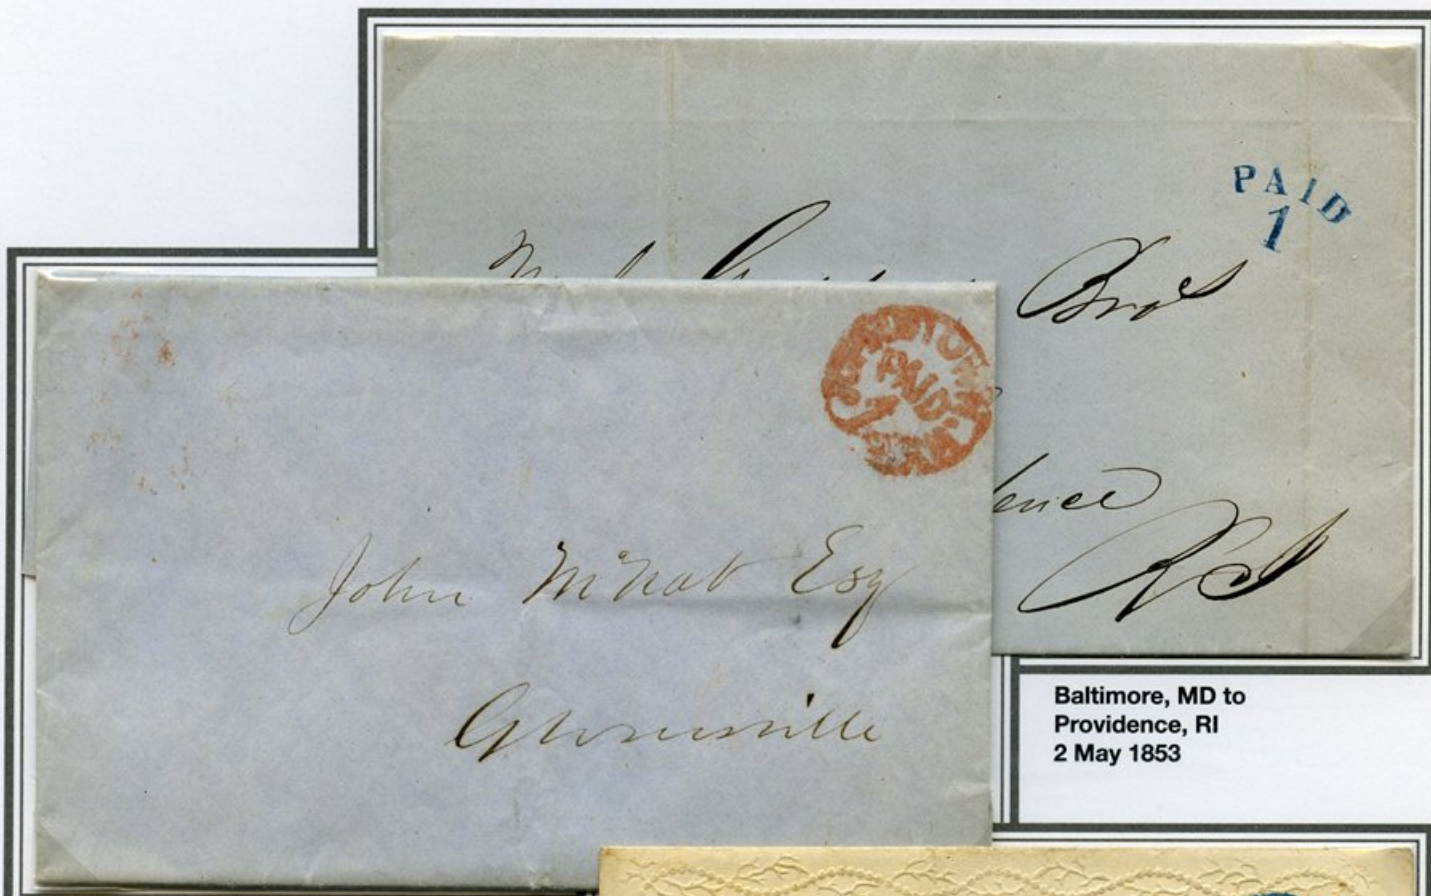 PAID
1
Bros
ence
RI
PAID
1
John McNab Esq
Gloversville
Baltimore, MD to
Providence, RI
2 May 1853